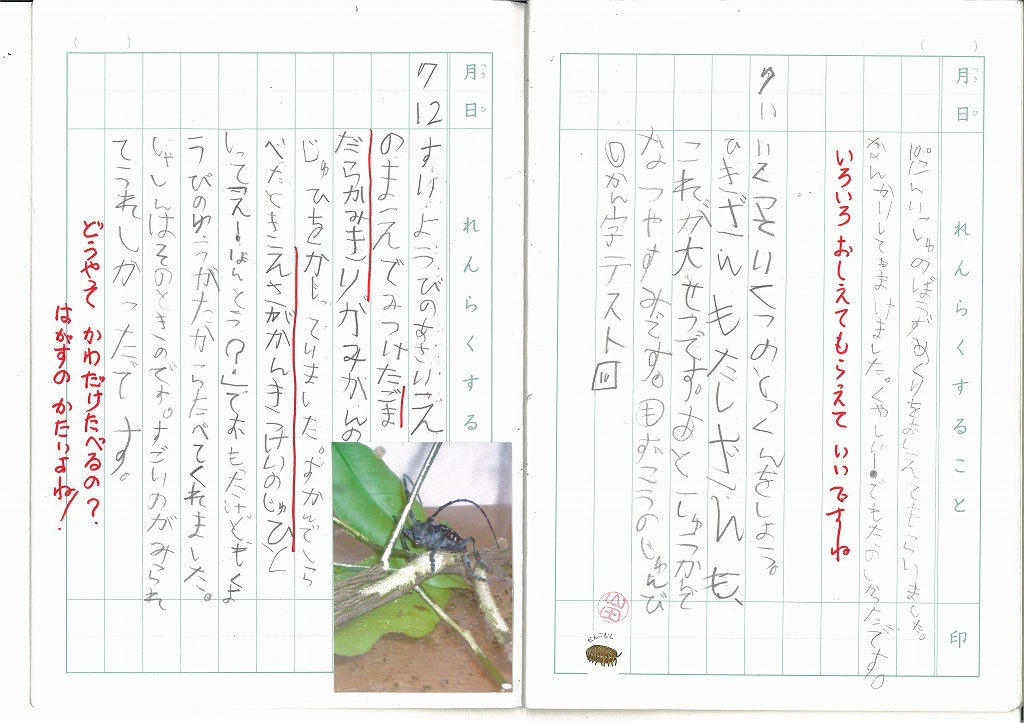 月日 れんらくすること 印
100にんいっしゅのぼうずめくりをおしえてもらいました。
なんかいしてもまけました。くやしい！でもたのしかったです。
いろいろ おしえてもらえて いいですね
7 11
ひきざんもたしざんも、
これが大せつです。あと一しゅうかんで
なつやすみです。もむこうのじゅんび
かん字テスト 10
だんごむし
月日 れんらくする
7 12
すいようびのあさいえ
のまえでみつけたごま
だらかみきりがみかんの
じゅひをかじっていました。おかんでしら
べたときえさがかんきつけいのじゅひ
って「えーほんとう？」ておもったけどもくよ
うびのゆうがたからたべてくれました。
しゃしんはそのときのです。すごいのがみられ
てうれしかったです。
どうやって かわだけたべるの？
はがすの かたいよね！